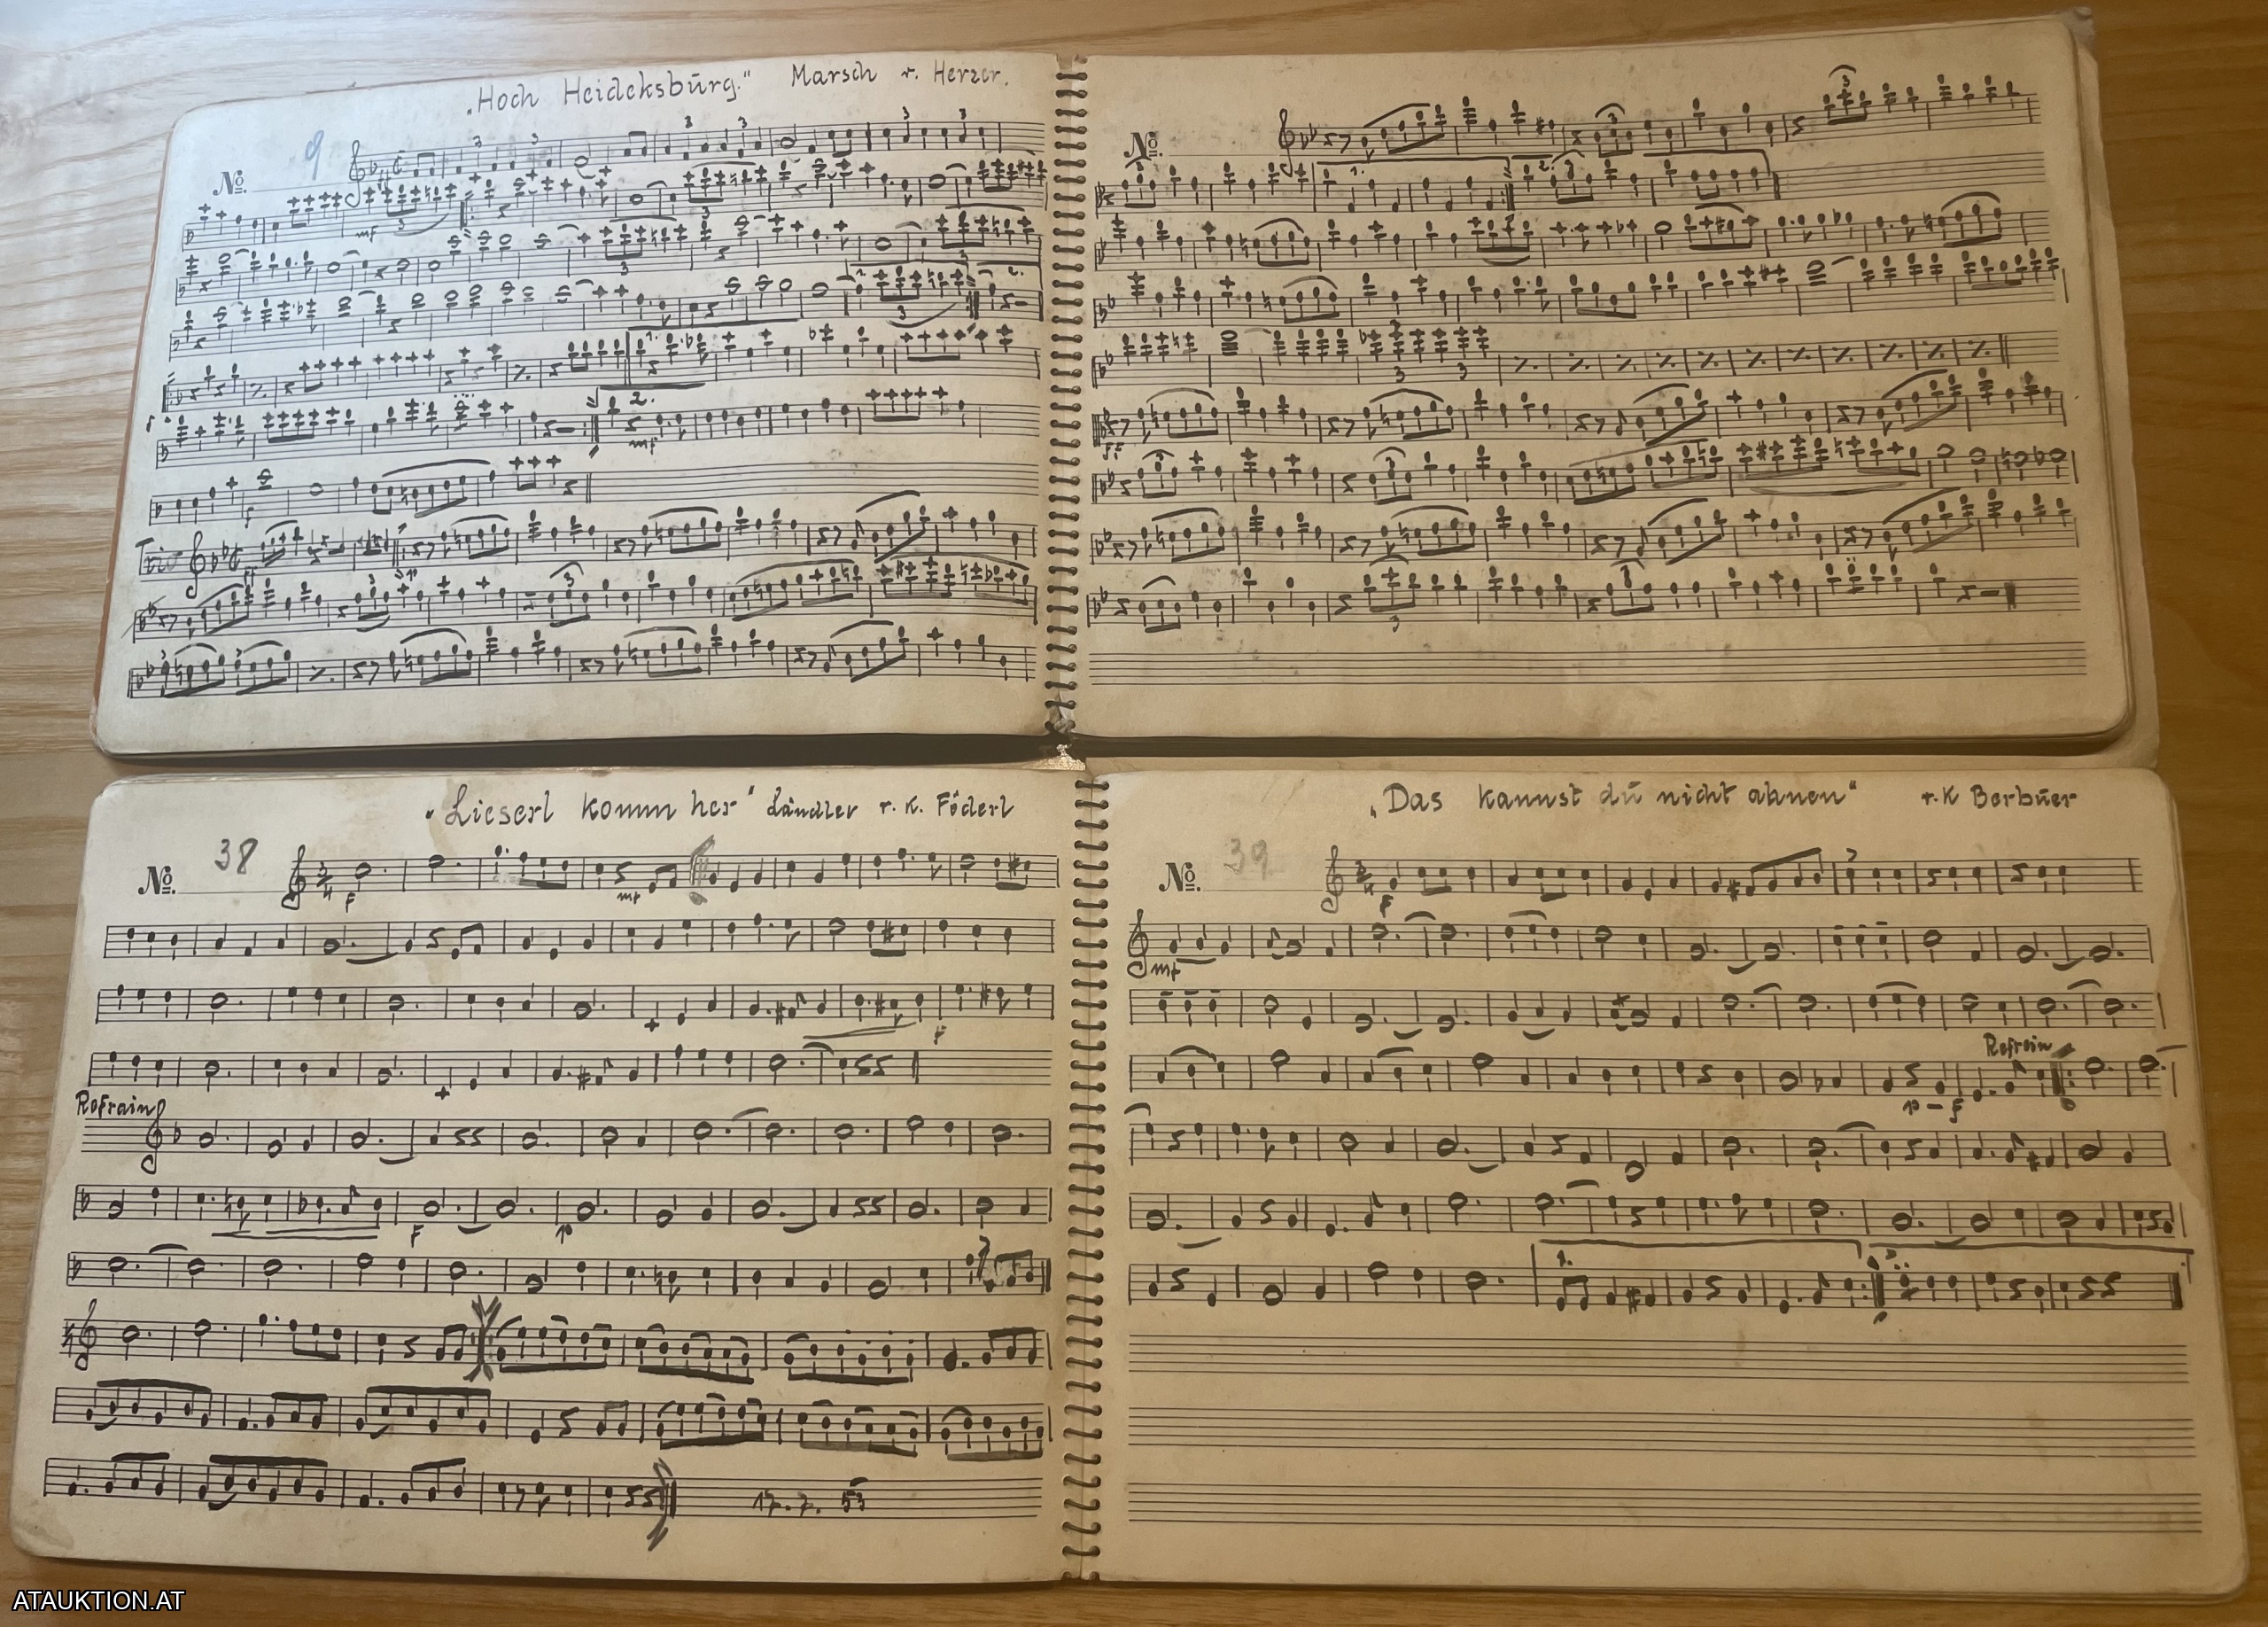 „Hoch Heideksburg." Marsch v. Herzer.
No. 9
mf
1. 2.
1.
2.
mf
f
Trio
ff
p
No.
1. 2.
ff
„Lieserl komm her" Ländler v. K. Föderl
No. 38
f
mf
f
Refrain
f
p
17. 7. 53
„Das kannst du nicht ahnen" v. K Berbuer
No. 39
f
mf
Refrain
p - f
1. 2.
ATAUKTION.AT